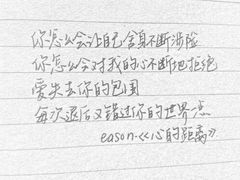 你怎么会让自己含身不断涉险
你怎么会对我的心不断地拒绝
爱失去你的包围
每次退后又错过你的世界点
eason.《心的距离》